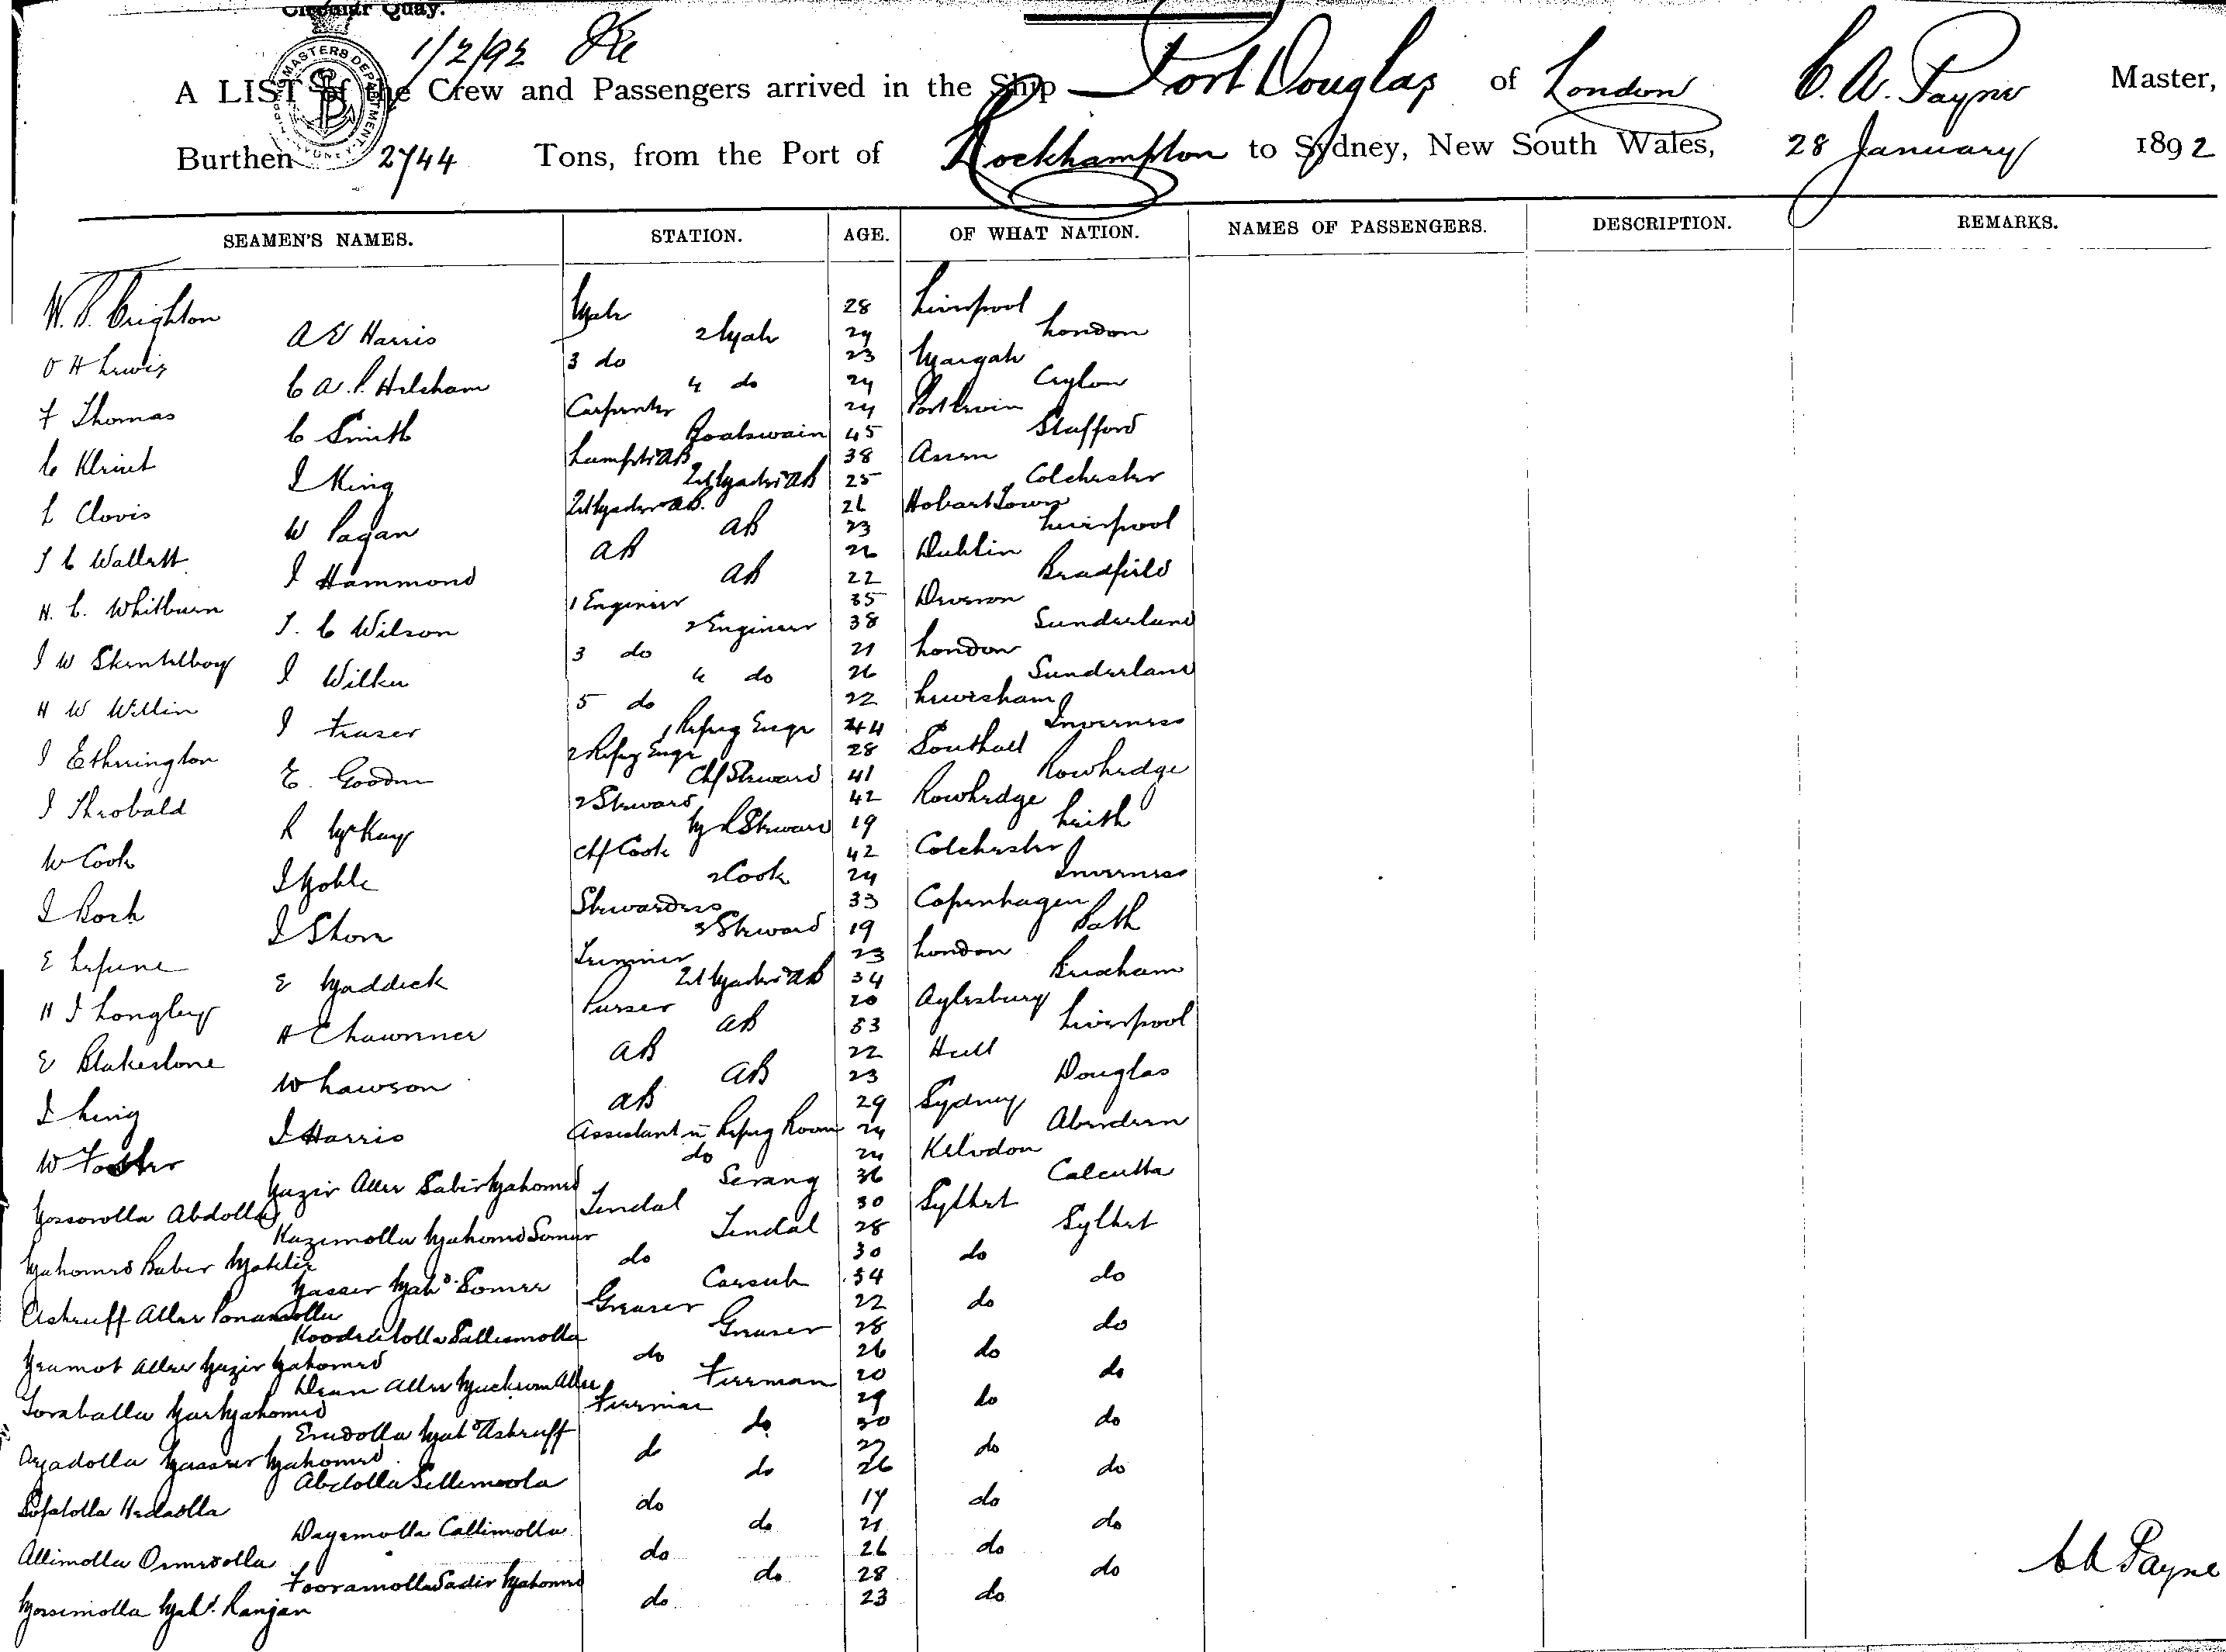 Circular Quay.
1/2/92
A LIST of the Crew and Passengers arrived in the Ship Port Douglas of London C. A. Payne Master,
Burthen 2744 Tons, from the Port of Rockhampton to Sydney, New South Wales, 28 January 1892
SEAMEN'S NAMES. STATION. AGE. OF WHAT NATION. NAMES OF PASSENGERS. DESCRIPTION. REMARKS.
W. P. Crighton Mate 28 Liverpool
A E Harris 2 Mate 29 London
O H Lewis 3 do 23 Margate
C A. P. Hilcham 4 do 24 Ceylon
F Thomas Carpenter 24 Port
C Smith Boatswain 45 Stafford
C Klint Lamps & AB 38
J King Qtr Master & AB 25 Colchester
L Clovis Qtr Master & AB. 26 Hobart Town
W Pagan AB 23 Liverpool
J C Wallett AB 26 Dublin
J Hammond AB 22 Bradfield
H. C. Whitburn 1 Engineer 35 Devon
J. C Wilson 2 Engineer 38 Sunderland
J W Skentelbery 3 do 21 London
J Wilkie 4 do 26 Sunderland
H W Willin 5 do 22 Lewisham
J Fraser 1 Refrig Engr 44 Inverness
J Etherington 2 Refrig Engr 28 Southall
E. Goodin Chf Steward 41 Rowhedge
J Theobald 2 Steward 42 Rowhedge
R McKay M R Steward 19 Leith
W Cook Chf Cook 42 Colchester
J Noble 2 Cook 24 Inverness
J Koch Stewardess 33 Copenhagen
J Stone 3 Steward 19 Bath
E Lefune Trimmer 23 London
E Maddick Qtr Master & AB 34 Brixham
H J Longley Purser 20 Aylesbury
H Chawnner AB 53 Liverpool
E Blakestone AB 22 Hull
W Lawson AB 23 Douglas
J King AB 29 Sydney
J Harris Assistant in Refrig Room 24 Aberdeen
W Foster do 24 Kelvedon
Nazir Aller Sabir Mahomed Serang 36 Calcutta
Mossorolla Abdolla Tindal 30 Sylhet
Kazimolla Mahomed Somar Tindal 28 Sylhet
Mahomed Baber do 30 do
Nasser Mahd. Somer 34 do
Ashruff Aller Greaser 22 do
Greaser 28 do
Aller Nazir Mahomed do 26 do
Dean Aller Fireman 20 do
Toraballa Mahomed Fireman 29 do
Erudolla Mahd Ashruff do 30 do
Ayadolla Nasser Mahomed do 22 do
Abdolla Sellimoola do 26 do
Sofatolla Hedaolla do 19 do
Dayemolla Callimolla do 21 do
Allimolla do 26 do
Tooramolla Sadir Mahomed do 28 do
Mossimolla Mahd. Ranjan do 23 do
C A Payne